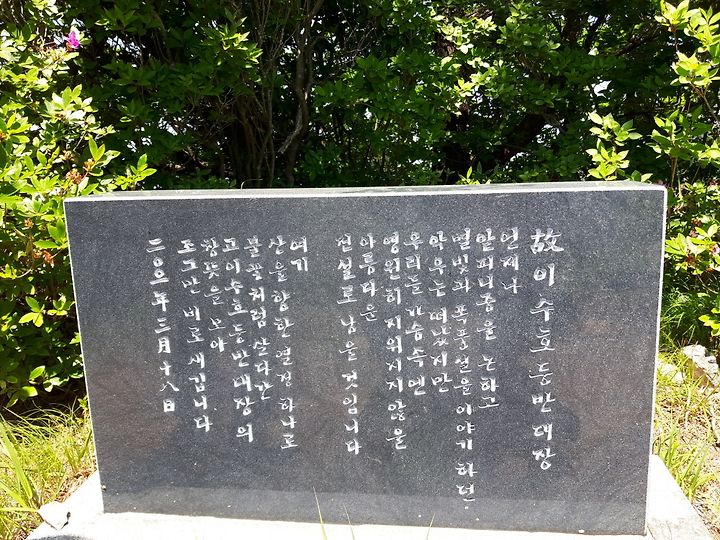 故이수호등반대장
언제나
알피니즘을 논하고
별빛과 폭풍설을 이야기하던
악우는 떠났지만
우리들 가슴속엔
영원히 지워지지않을
아름다운
전설로 남을 것입니다
여기
산을 향한 열정 하나로
불꽃처럼 살다간
고이수호등반대장의
참뜻을 모아
조그만 비로 새깁니다
二〇〇一年三月十八日